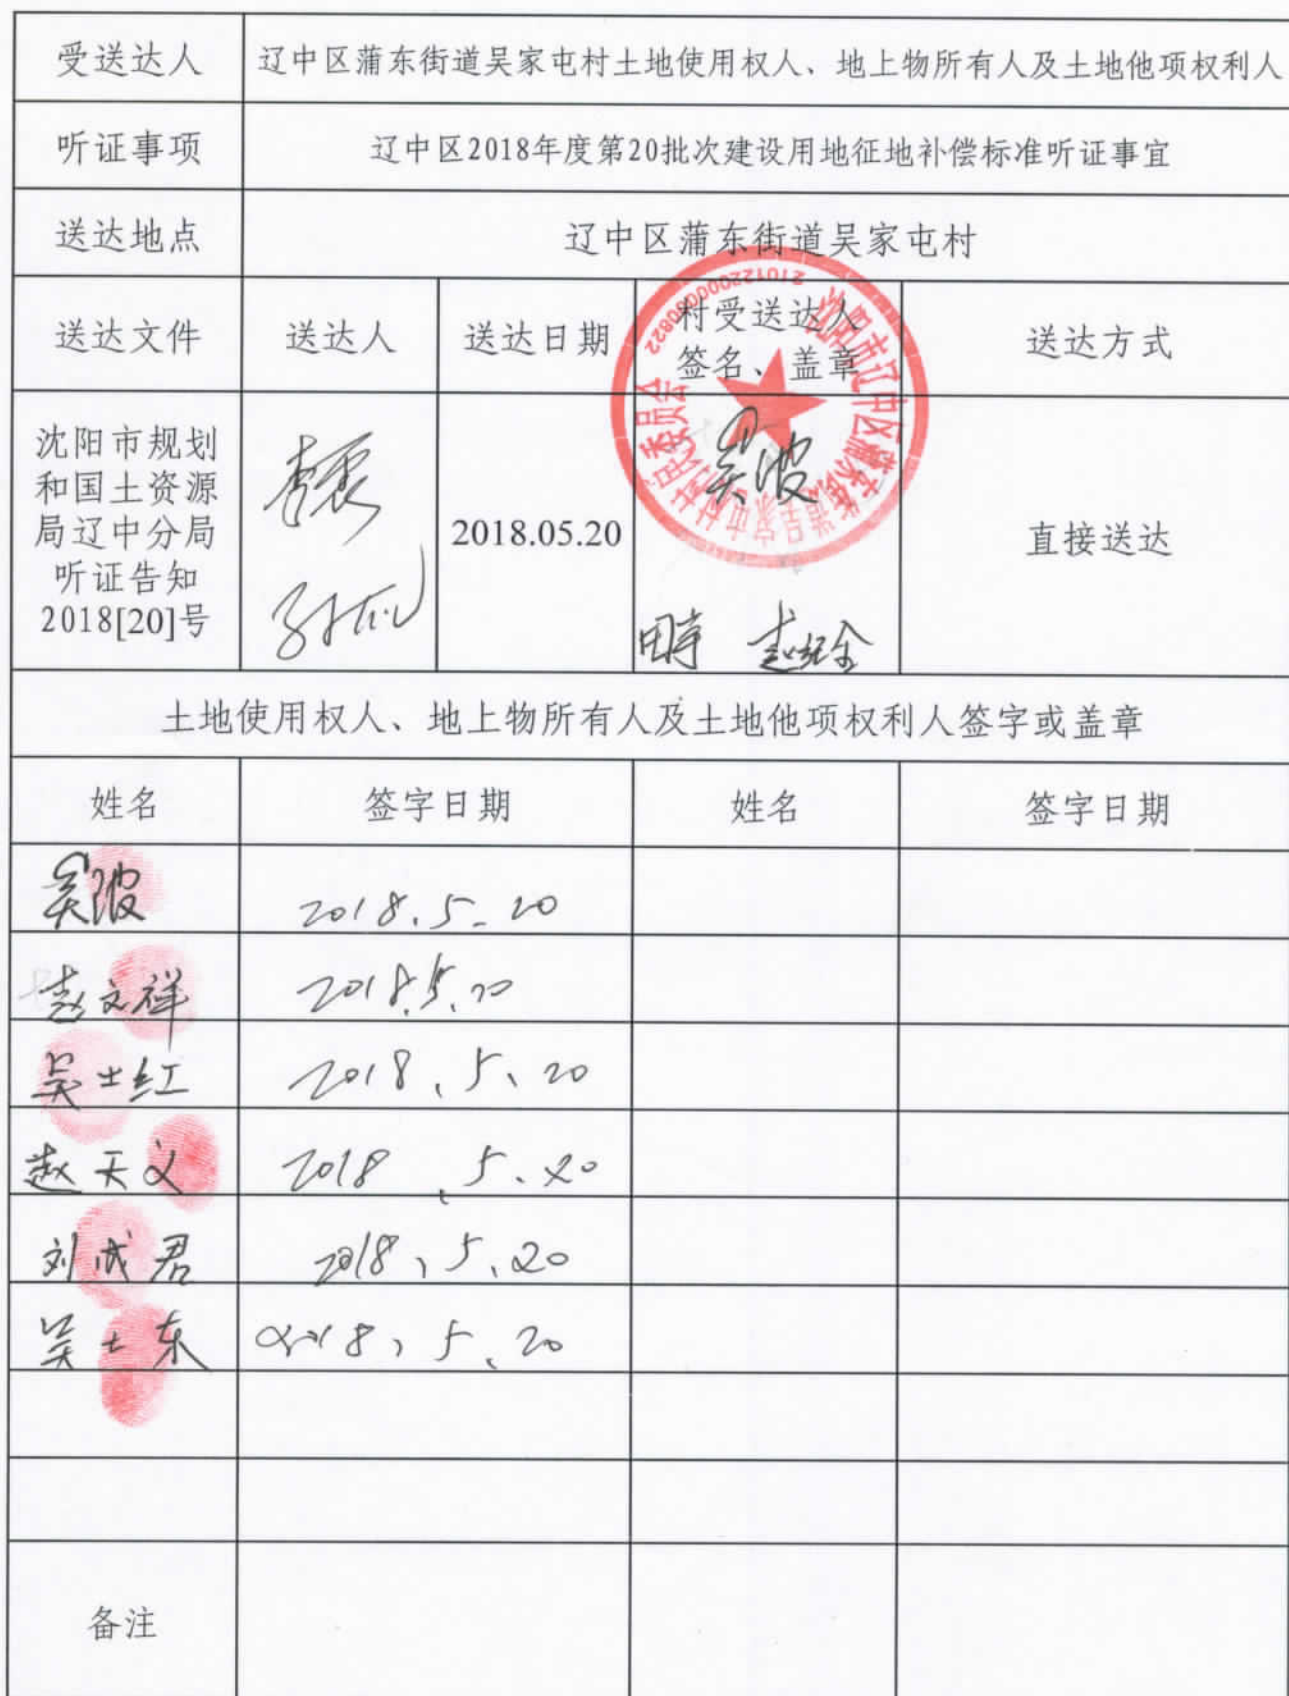 受送达人 辽中区蒲东街道吴家屯村土地使用权人、地上物所有人及土地他项权利人
听证事项 辽中区2018年度第20批次建设用地征地补偿标准听证事宜
送达地点 辽中区蒲东街道吴家屯村
送达文件 送达人 送达日期 村受送达人 送达方式
签名、盖章
2101220000822
沈阳市辽中区蒲东街道吴家屯村村民委员会
沈阳市规划
和国土资源
局辽中分局
听证告知
2018[20]号
2018.05.20
吴波
直接送达
土地使用权人、地上物所有人及土地他项权利人签字或盖章
姓名 签字日期 姓名 签字日期
吴波 2018.5.20
赵文祥 2018.5.20
吴士红 2018、5、20
赵天义 2018、5、20
刘成君 2018、5、20
吴士东 2018、5、20
备注